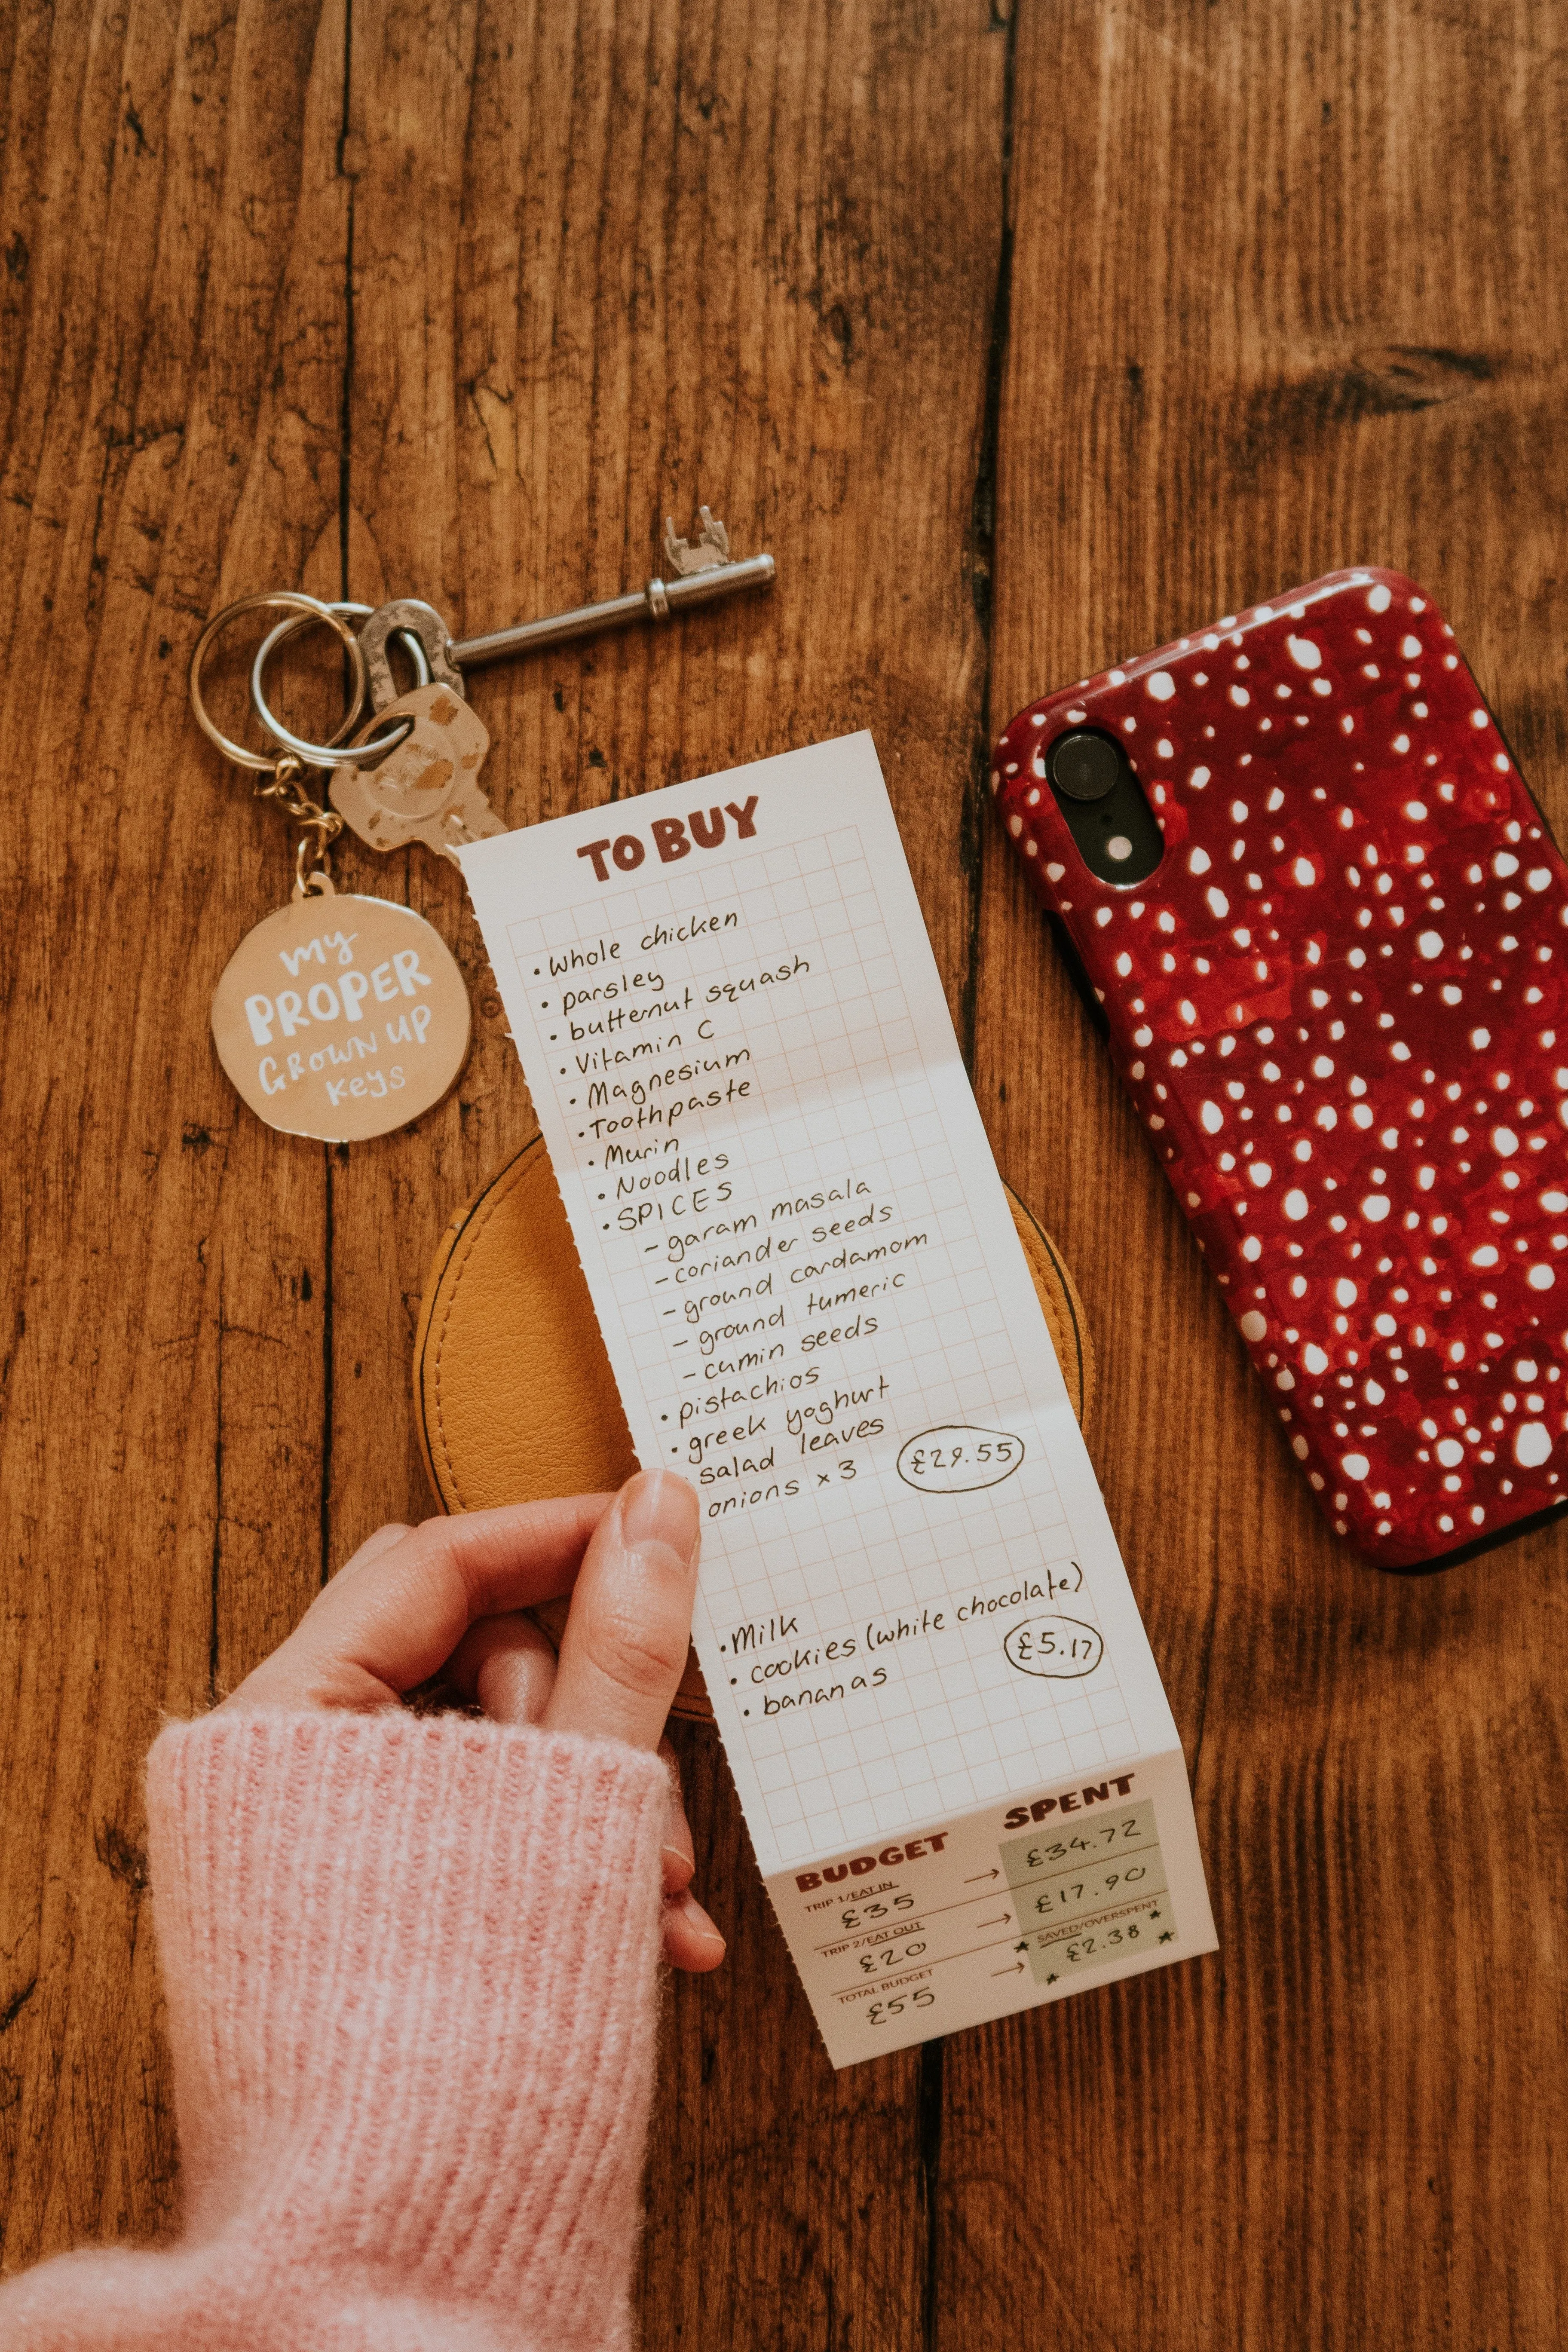 my
PROPER
GROWN UP
keys
TO BUY
• Whole chicken
• parsley
• butternut squash
• Vitamin C
• Magnesium
• Toothpaste
• Murin
• Noodles
• SPICES
- garam masala
- coriander seeds
- ground cardamom
- ground tumeric
- cumin seeds
• pistachios
• greek yoghurt
• salad leaves
onions x 3 £29.55
• Milk
• cookies (white chocolate)
• bananas £5.17
BUDGET SPENT
TRIP 1/EAT IN
£35 → £34.72
TRIP 2/EAT OUT
£20 → £17.90
TOTAL BUDGET SAVED/OVERSPENT
£55 → £2.38